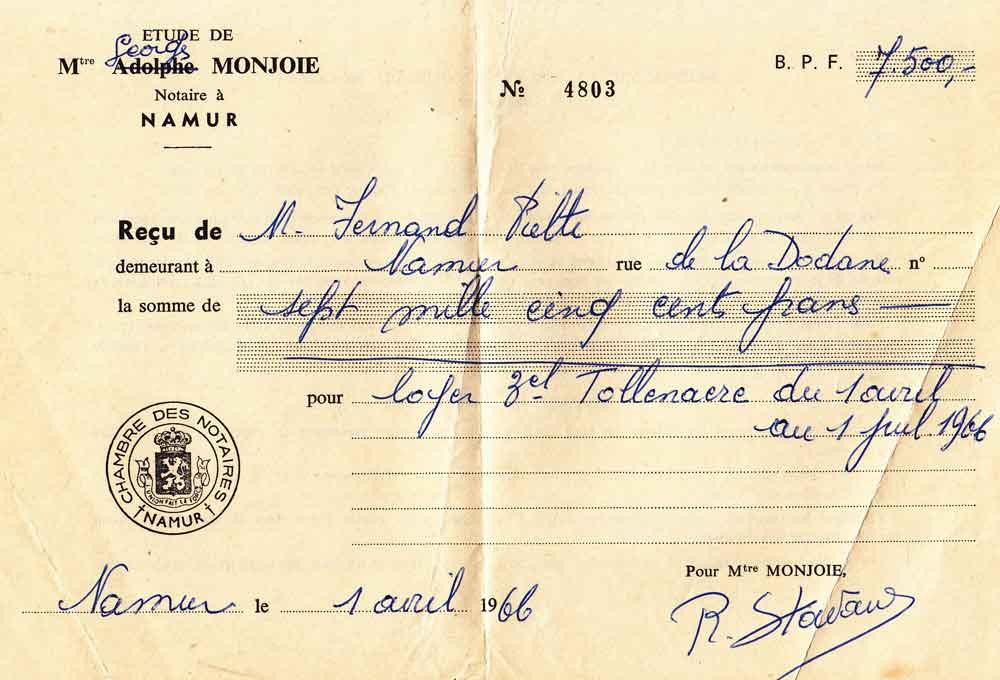 ETUDE DE
Georges
Mtre Adolphe MONJOIE
Notaire à
NAMUR
B. P. F. 7.500,-
№ 4803
Reçu de M. Fernand Piette
demeurant à Namur rue de la Dodane n°
la somme de sept mille cinq cent frans
pour loyer Tollenaere du 1 avril
au 1 juil. 1966
CHAMBRE DES NOTAIRES
NAMUR
L'UNION FAIT LA FORCE
Namur le 1 avril 1966
Pour Mtre MONJOIE,
R.